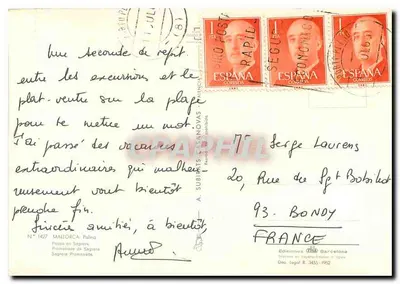 Une seconde de répit
entre les excursions et le
plat-ventre sur la plage
pour te mettre un mot.
J'ai passé des vacances
extraordinaires qui malheu-
reusement vont bientôt
prendre fin.
Sincère amitiés, à bientôt,
N.° 1427 MALLORCA Palma
Paseo de Sagrera
Promenade de Sagrera
Sagrera Promenade
A. SUBIRATS CASANOVAS
CPAPHIL.com
1 ESPAÑA
1 ESPAÑA
1 ESPAÑA
Serge Laurens
20, Rue de Sgt Bobillot
93. BONDY
FRANCE
Barcelona